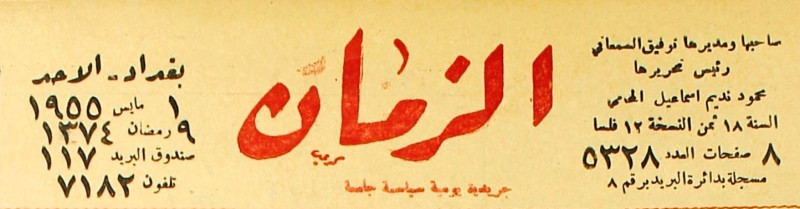 صاحبها ومديرها توفيق السمعاني
رئيس تحريرها
محمود نديم اسماعيل المحامي
السنة ١٨ ثمن النسخة ١٢ فلسا
٨ صفحات العدد ٥٣٢٨
مسجلة بدائرة البريد برقم ٨
الزمان
جريدة يومية سياسية جامعة
بغداد - الاحد
١ مايس ١٩٥٥
٩ رمضان ١٣٧٤
صندوق البريد ١١٧
تلفون ٧١٨٢